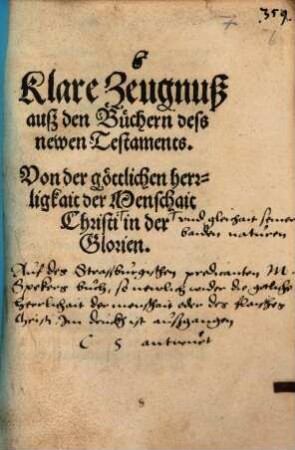 7 359.
6
6
Klare Zeugnuß
auß den Büchern deß
newen Testaments.
Von der göttlichen herr-
ligkait der Menschait
Christi in der
Glorien.
vnd gleichait seiner
baiden naturen
Auf des Strassburgischen predicanten M.
Spekers buch, so newlich wider die gotliche
Heerlichait der menschait oder des flaisches
Christi Im druckh ist aussgangen
C S antwurt
8